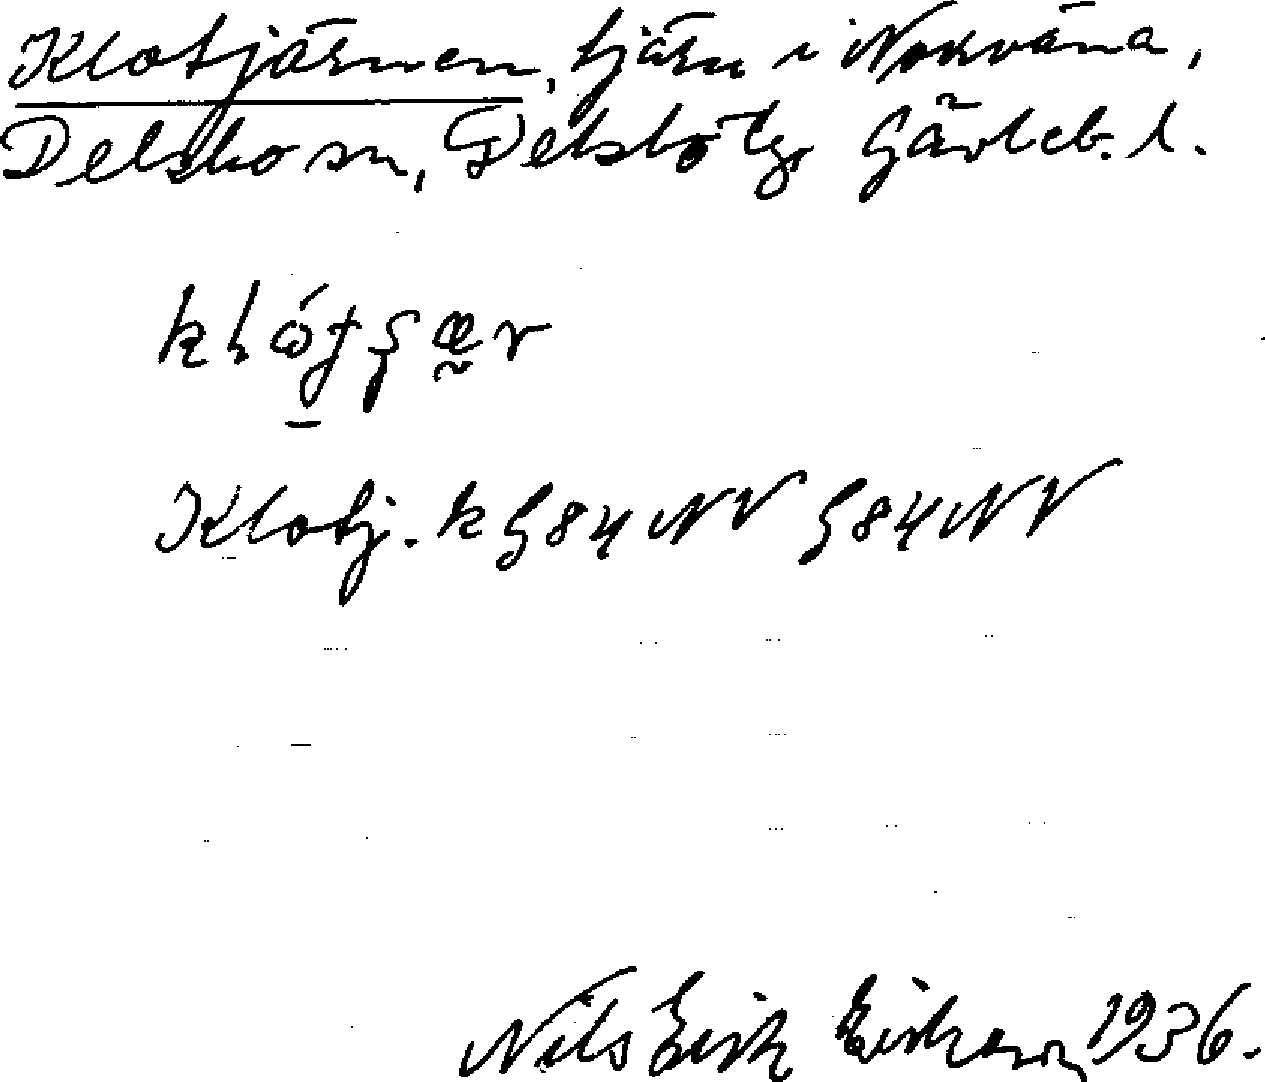 Klotjärnen, tjärn i Norrväna,
Delsbo sn, Delsbo tg Gävleb. l.
Klotj. k G84NV G84NV
Nils Erik Erikson 1936.